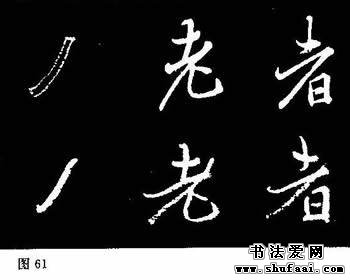 老 者
老 者
图 61
书法爱网
www.shufaai.com